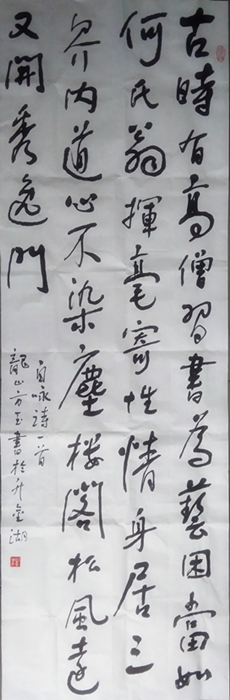 古時有高僧習書為藝困當如
何氏翁揮毫寄性情身居三
界内道心不染塵楼閣松風遠
又開秀逸門
自咏詩一首
龍山方玉書於升金湖